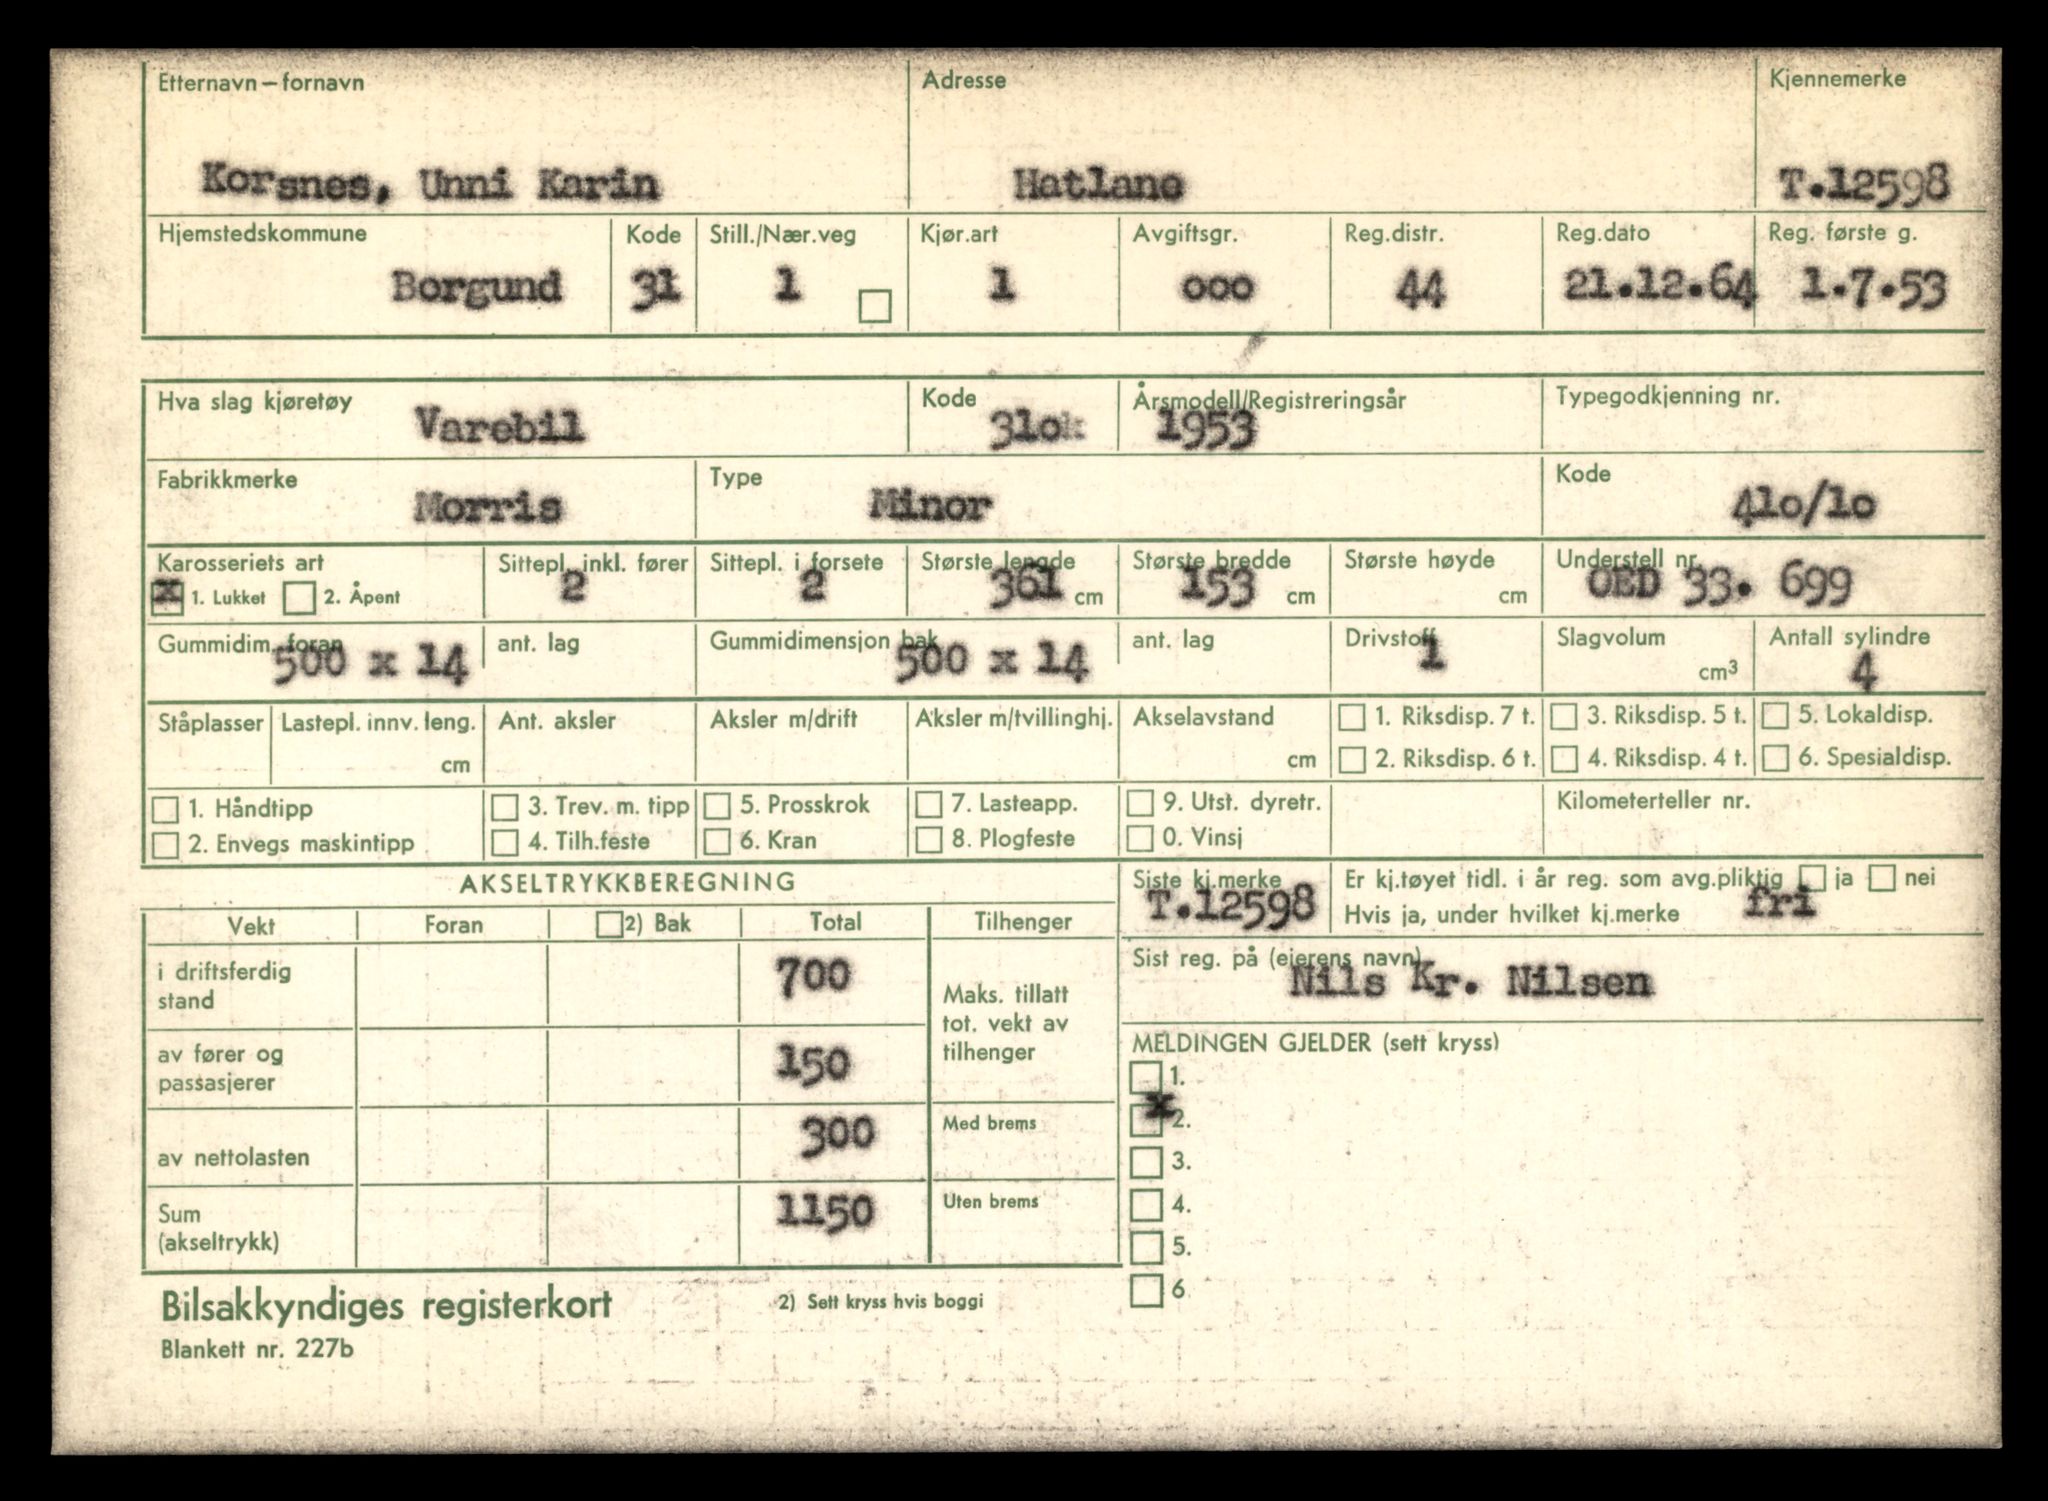 Etternavn – fornavn Adresse Kjennemerke
Korsnes, Unni Karin Hatlane T.12598
Hjemstedskommune Kode Still./Nær.veg Kjør.art Avgiftsgr. Reg.distr. Reg.dato Reg. første g.
Borgund 31 1 1 ooo 44 21.12.64 1.7.53
Hva slag kjøretøy Kode Årsmodell/Registreringsår Typegodkjenning nr.
Varebil 31ok 1953
Fabrikkmerke Type Kode
Morris Minor 41o/1o
Karosseriets art Sittepl. inkl. fører Sittepl. i forsete Største lengde Største bredde Største høyde Understell nr.
x 1. Lukket 2. Åpent 2 2 361 cm 153 cm cm OED 33. 699
Gummidim. foran ant. lag Gummidimensjon bak ant. lag Drivstoff Slagvolum Antall sylindre
500 x 14 500 x 14 1 cm3 4
Ståplasser Lastepl. innv. leng. Ant. aksler Aksler m/drift Aksler m/tvillinghj. Akselavstand 1. Riksdisp. 7 t. 3. Riksdisp. 5 t. 5. Lokaldisp.
cm cm 2. Riksdisp. 6 t. 4. Riksdisp. 4 t. 6. Spesialdisp.
1. Håndtipp 3. Trev. m. tipp 5. Prosskrok 7. Lasteapp. 9. Utst. dyretr. Kilometerteller nr.
2. Envegs maskintipp 4. Tilh.feste 6. Kran 8. Plogfeste 0. Vinsj
AKSELTRYKKBEREGNING Siste kj.merke Er kj.tøyet tidl. i år reg. som avg.pliktig ja nei
T.12598 Hvis ja, under hvilket kj.merke fri
Vekt Foran 2) Bak Total Tilhenger
Sist reg. på (eierens navn)
Nils Kr. Nilsen
i driftsferdig
stand 700
Maks. tillatt
tot. vekt av
tilhenger
MELDINGEN GJELDER (sett kryss)
av fører og
passasjerer 150
1.
x 2.
av nettolasten 300 Med brems
3.
4.
Sum
(akseltrykk) 1150 Uten brems
5.
6
Bilsakkyndiges registerkort 2) Sett kryss hvis boggi
Blankett nr. 227b